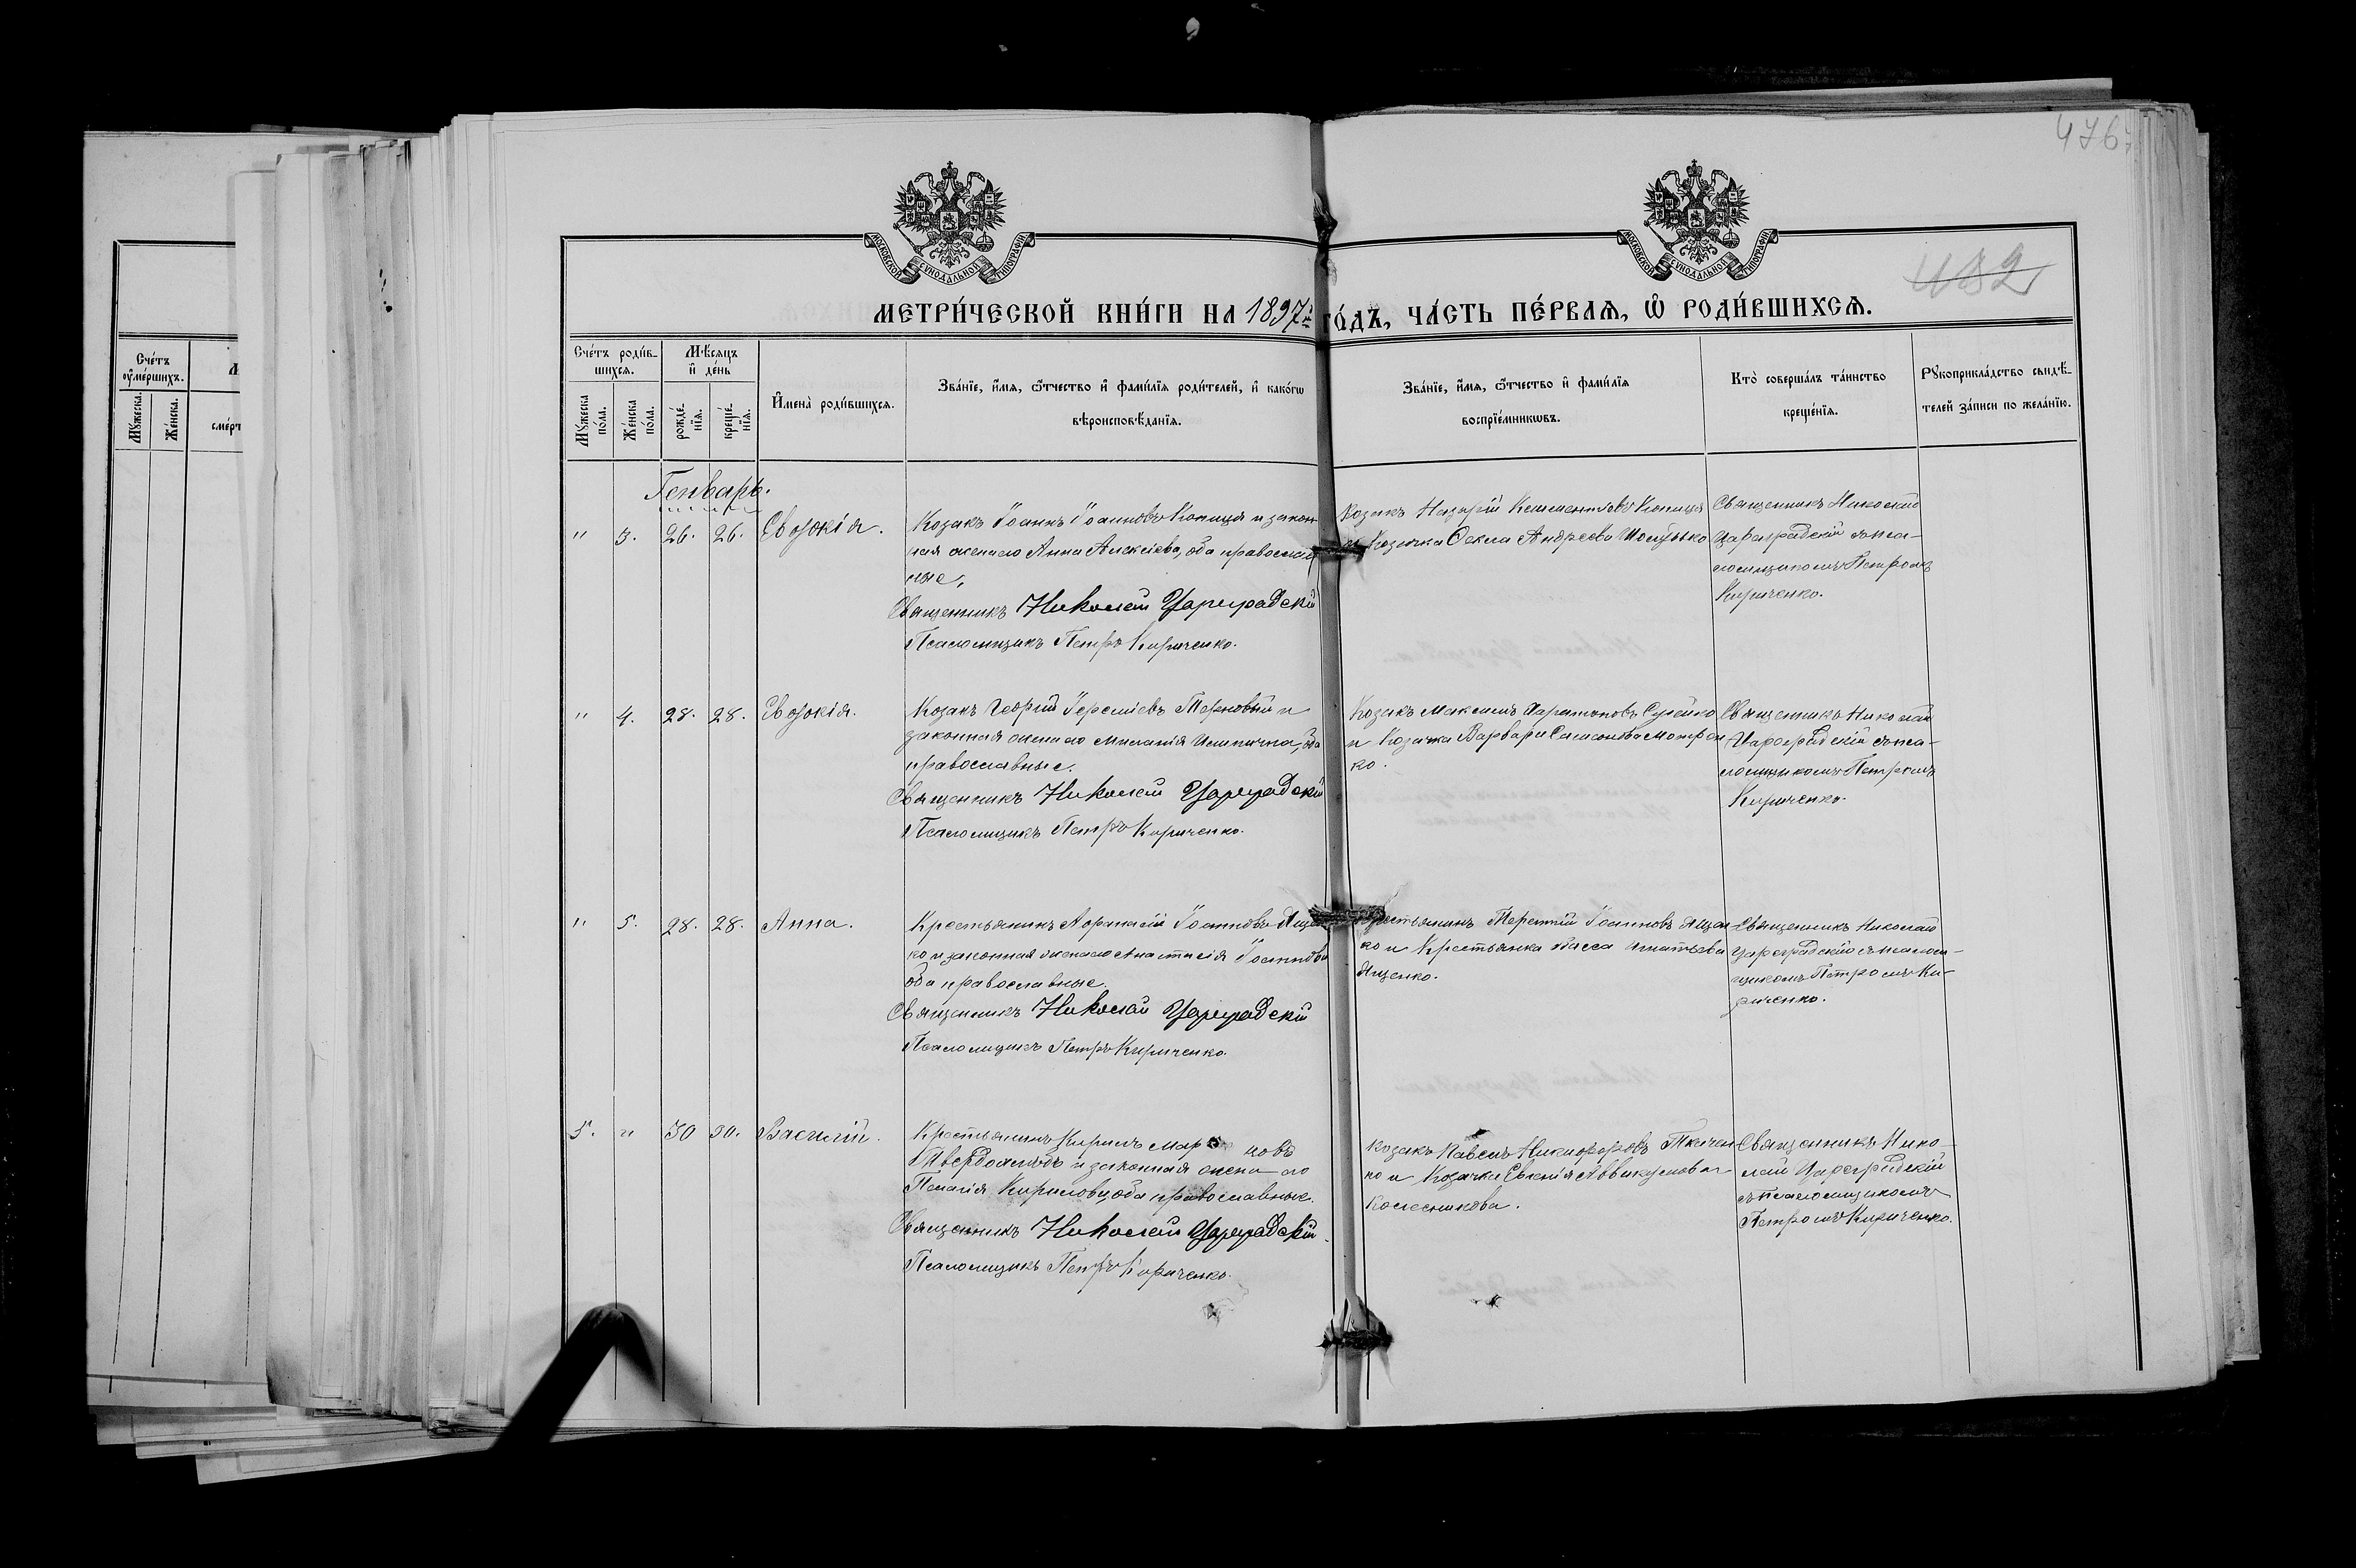 476
482
МОСКОВСКОЙ СѴНОДАЛЬНОЙ ТИПОГРАФІИ
МОСКОВСКОЙ СѴНОДАЛЬНОЙ ТИПОГРАФІИ
МЕТРИ́ЧЕСКОЙ КНИ́ГИ НА 1897й ГО́ДЪ, ЧА́СТЬ ПЕ́РВАѦ, Ѽ РОДИ́ВШИХСѦ.
Сче́тъ оу҆ме́ршихъ.
Мꙋ́жеска.
Же́нска.
Сче́тъ роди́вшихсѧ.
Мꙋ́жеска по́ла.
Же́нска по́ла.
Мѣ́сѧцъ и҆ де́нь
рожде́нїѧ.
креще́нїѧ.
И҆мена̀ роди́вшихсѧ.
Зва́нїе, и҆́мѧ, ѻ҆́тчество и҆ фами́лїѧ роди́телей, и҆ како́гѡ
вѣроисповѣ́данїѧ.
Зва́нїе, и҆́мѧ, ѻ҆́тчество и҆ фами́лїѧ
воспрїе́мникѡвъ.
Кто̀ соверша́лъ та́инство
креще́нїѧ.
Рꙋкоприкла́дство свидѣ́-
телей за́писи по жела́нїю.
Генварь.
" 3. 26. 26. Евдокія.
Козакъ Іоаннъ Іоанновъ Копиця и закон
ная жена его Анна Алексіева, оба православ
ные.
Священникъ Николай Цареградскій
Псаломщикъ Петръ Кириченко.
Козакъ Назарій Климентіевъ Копиця
и Козачка Ѳекла Андреева
Священникъ Николай
Цареградскій съ пса-
ломщикомъ Петромъ
Кириченко.
" 4. 28. 28. Евдокія.
Козакъ Георгій Іереміевъ Терновый и
законная жена его Миланія, оба
православные.
Священникъ Николай Цареградскій
Псаломщикъ Петръ Кириченко.
Козакъ Максимъ Харитоновъ
и Козачка Варвара Самсонова
ко.
Священникъ Николай
Цареградскій съ пса-
ломщикомъ Петромъ
Кириченко.
" 5. 28. 28. Анна.
Крестьянинъ Аѳанасій Іоанновъ Ящен
ко и законная жена его Анастасія Іоаннова
оба православные.
Священникъ Николай Цареградскій
Псаломщикъ Петръ Кириченко.
Крестьянинъ Терентій Іоанновъ Ящен
ко и Крестьянка Васса Игнатьева
Ященко.
Священникъ Николай
Цареградскій съ псалом-
щикомъ Петромъ Ки-
риченко.
5. " 30 30. Василій.
Крестьянинъ Кирилъ
и законная жена его
Пелагія Кирилова, оба православные.
Священникъ Николай Цареградскій
Псаломщикъ Петръ Кириченко.
Козакъ Павелъ Никифоровъ Ткачен
ко и Козачка Евгенія Аввакумова
Колесникова.
Священникъ Нико-
лай Цареградскій
съ псаломщикомъ
Петромъ Кириченко.